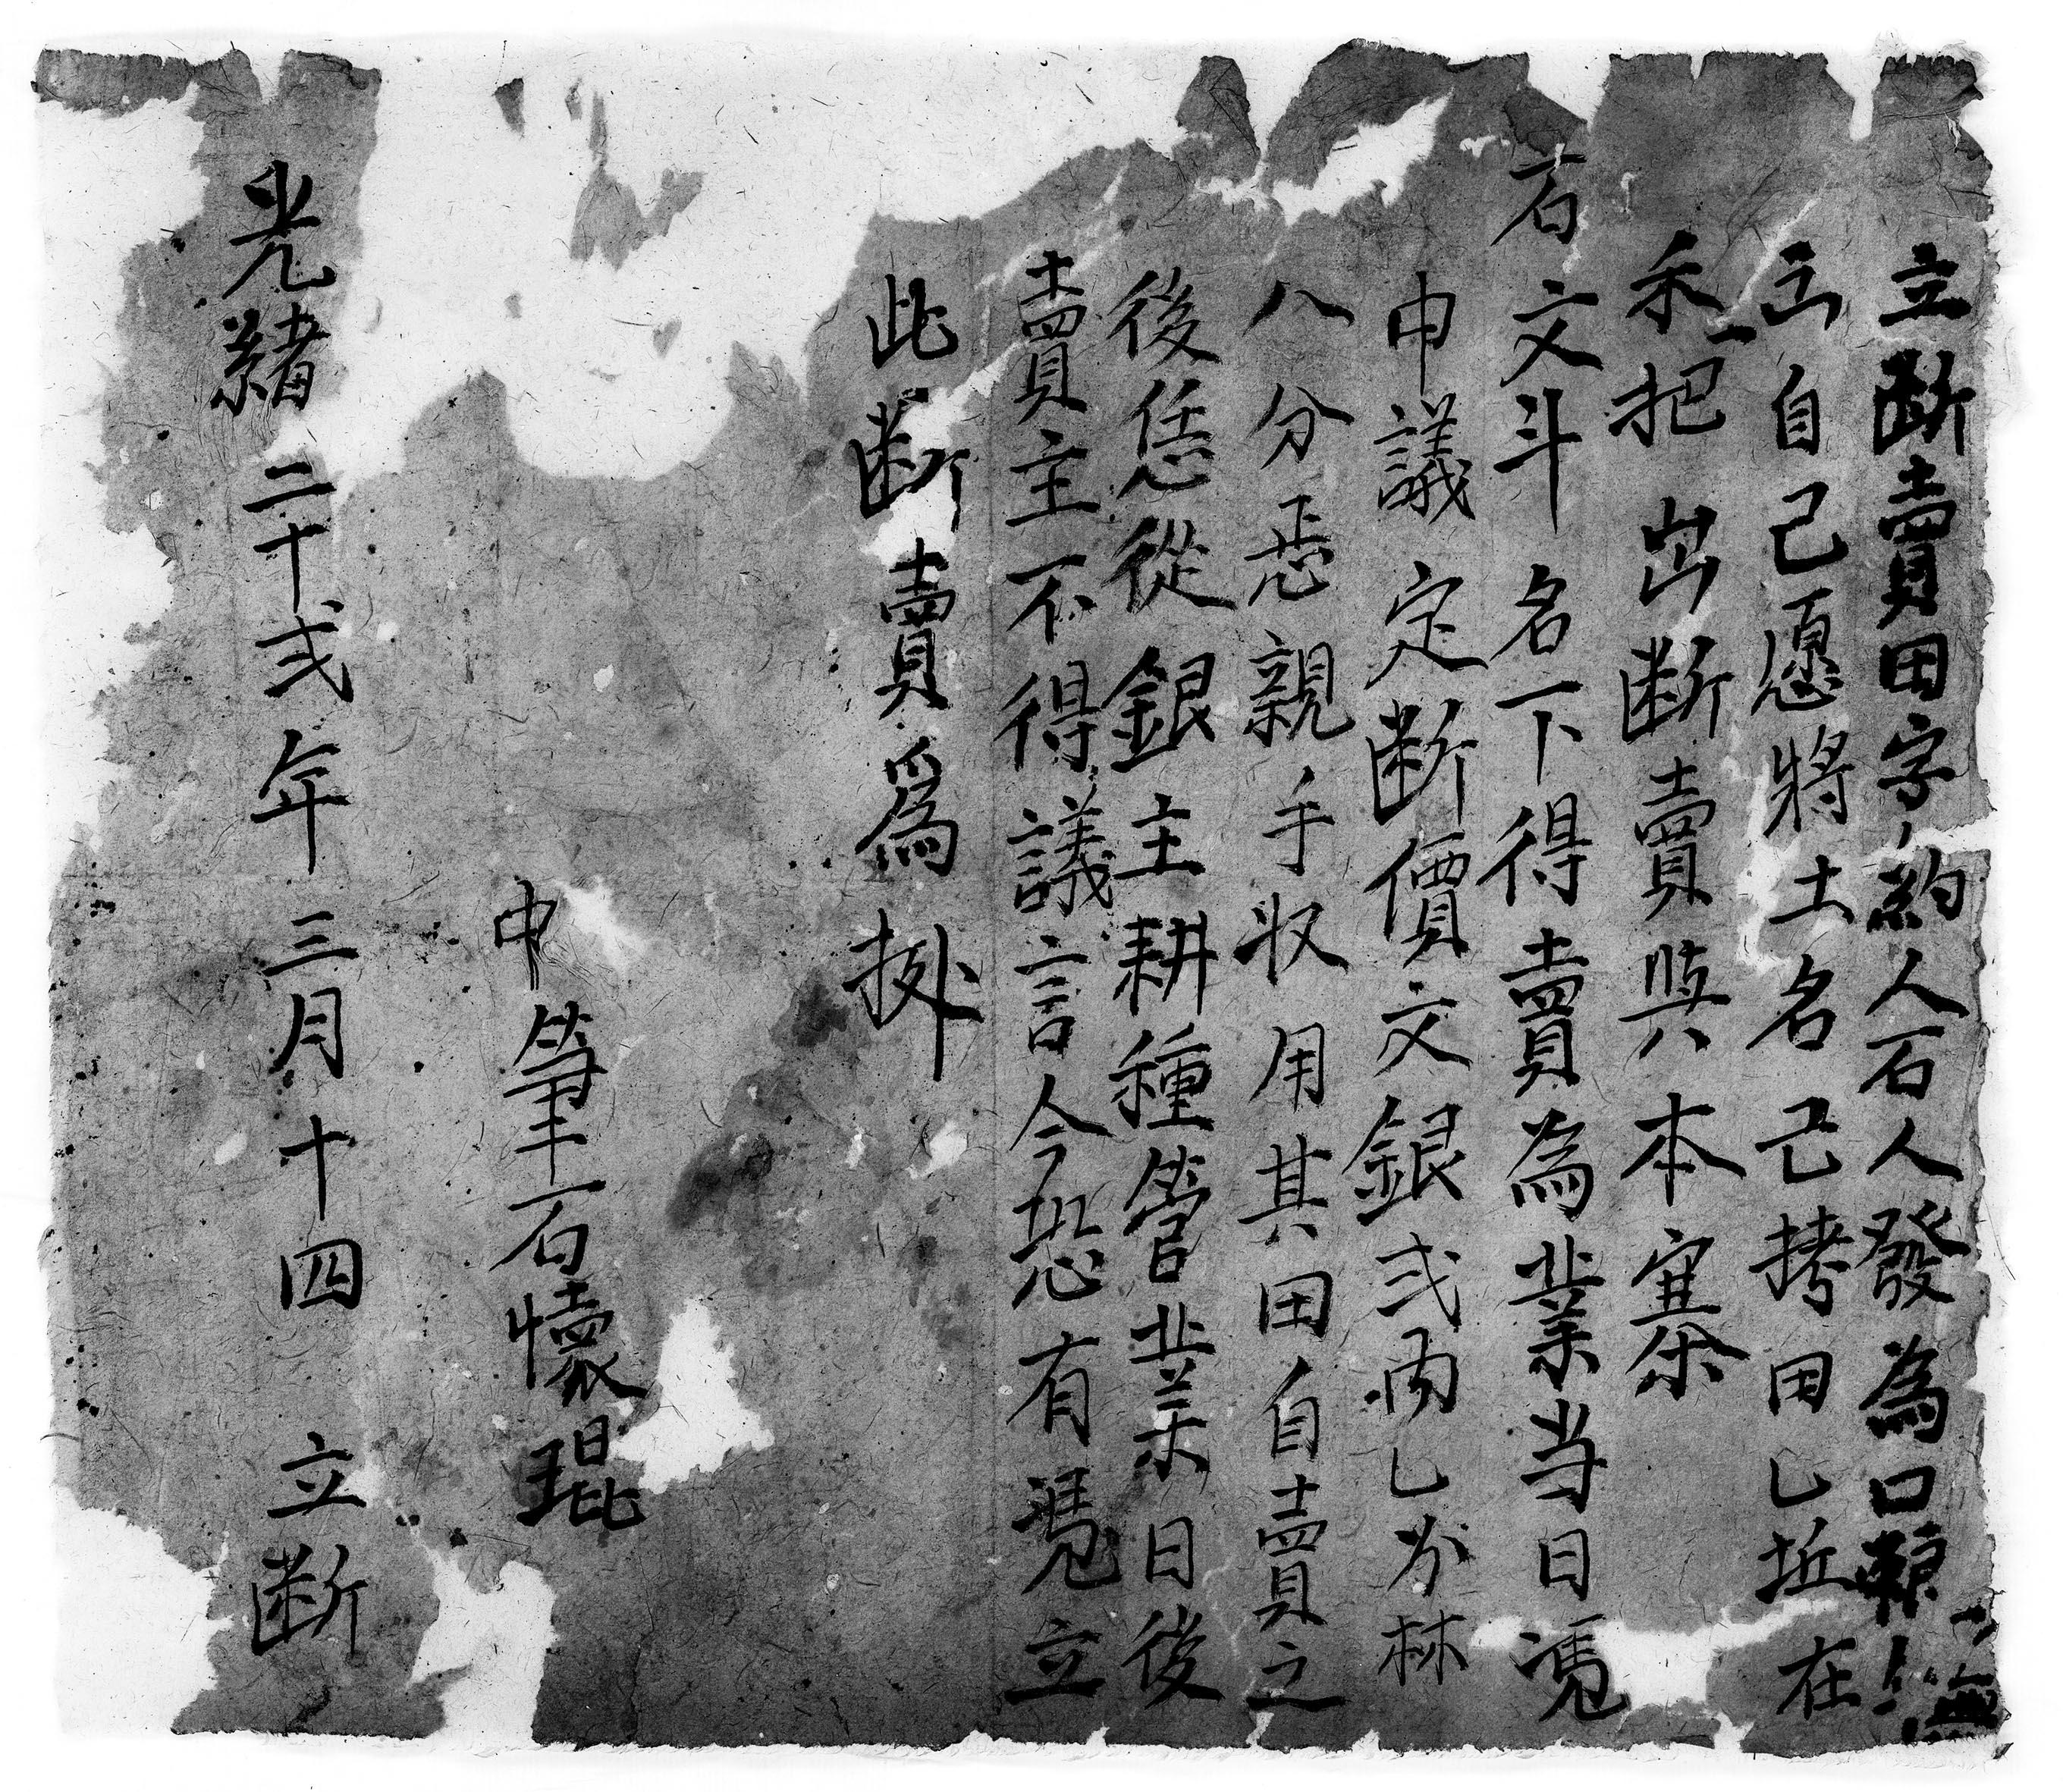 立断賣田字約人石人發為口
出自己愿將土名己拷田乚坵在
禾一把出断賣與本寨
石文斗名下得賣為業当日馮
中議定断價文銀弍両乚分林
八分恶親手收用其田自賣之
後恁從銀主耕種管業日後
賣主不得議言今恐有馮立
此断賣為掛
中筆石懷琨
光緒二十弍年三月十四立断